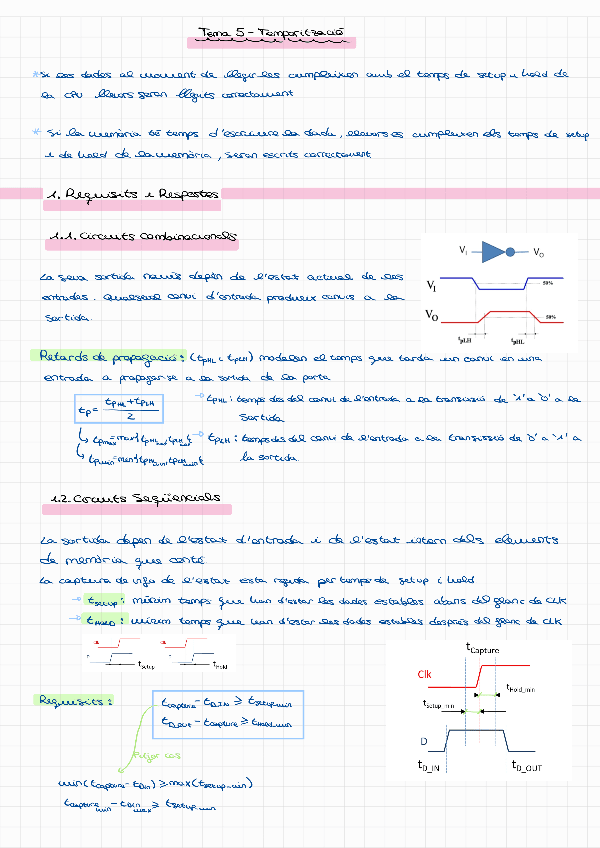 Tema 5 - Temporització
* Si les dades al moment de llegir les cumpleixen amb el temps de setup i hold de
la CPU llavors seran llegits correctament
* Si la memòria té temps d'escriure la dada, llavors es cumpleixen els temps de setup
i de hold de la memòria, seran escrits correctament
1. Requisits i Respostes
1.1. Circuits Combinacionals
La seva sortida només depèn de l'estat actual de les
entrades. Qualsevol canvi d'entrada produeix canvis a la
sortida.
V_I V_O
V_I 50%
V_O 50%
t_pLH t_pHL
Retards de propagació: (t_pHL i t_pLH) modelen el temps que tarda un canvi en una
entrada a propagar-se a la sortida de la porta
t_p = (t_pHL + t_pLH) / 2
→ t_pHL: temps des del canvi de l'entrada a la transició de '1' a '0' a la
sortida
↳ t_pmax = max{t_pHL_max, t_pLH_max}
→ t_pLH: temps des del canvi de l'entrada a la transició de '0' a '1' a
la sortida.
↳ t_pmin = min{t_pHL_min, t_pLH_min}
1.2. Circuits Seqüencials
La sortida depèn de l'estat d'entrada i de l'estat intern dels elements
de memòria que conté.
La captura de info de l'estat esta regida per temps de setup i hold
→ t_setup: mínim temps que han d'estar les dades estables abans del flanc de CLK
→ t_HOLD: mínim temps que han d'estar les dades estables després del flanc de CLK
t_setup t_Hold
t_Capture
Clk
t_Hold_min
t_Setup_min
D
t_D_IN t_D_OUT
Requisits:
t_capture - t_D_IN ≥ t_setup_min
t_D_OUT - t_capture ≥ t_Hold_min
Pitjor cas
min(t_capture - t_Din) ≥ max(t_setup_min)
t_capture_min - t_Din_max ≥ t_setup_min